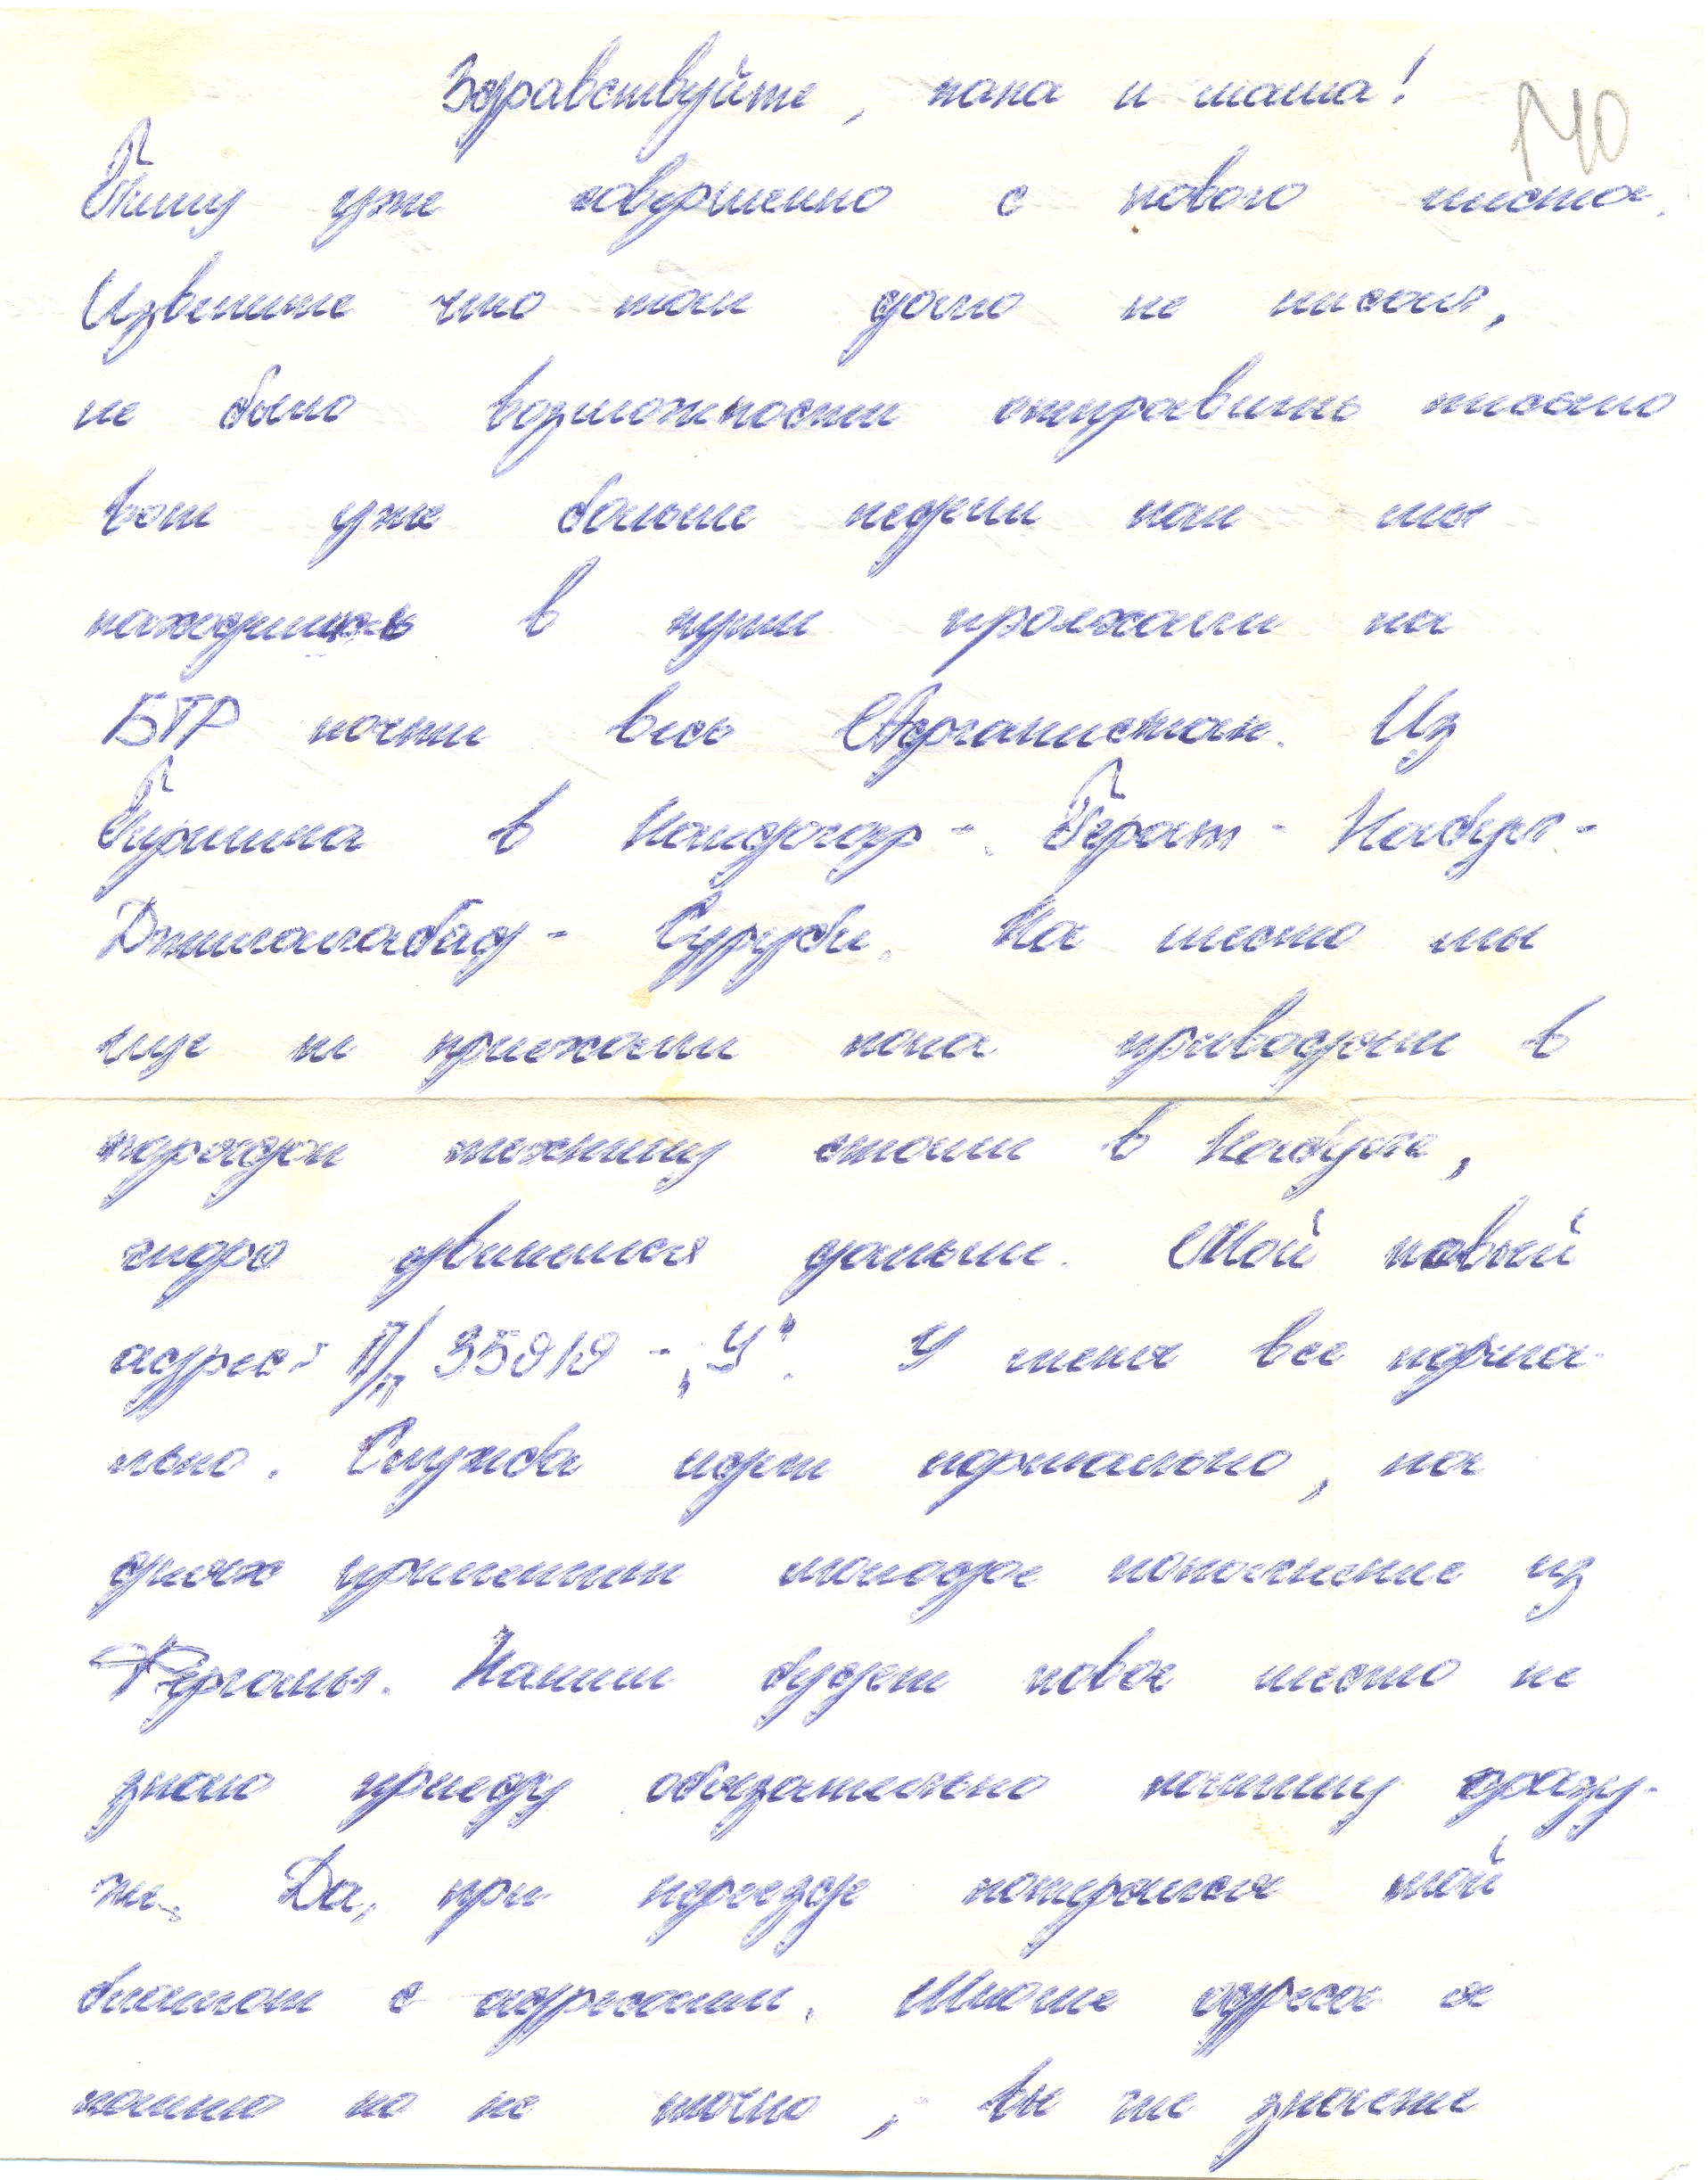 Здравствуйте, папа и мама!
140
Пишу уже совершенно с нового места.
Извените что так долго не писал,
не было возможности отправить письмо
вот уже больше недели как мы
находимись в пути проехали на
БТР почти весь Афганистан. Из
Гиришка в Кандагар - Герат - Кабул -
Джилалабад - Суруби. На место мы
еще не приехали пока приводят в
порядок технику стоим в Кабуле,
скоро двинемся дальше. Мой новый
адрес: П/п 35919 - "У". У меня все норма-
льно. Служба идет нормально, на
днях пришлют молодое пополнение из
Ферганы. Каким будет новое место не
знаю приеду обязательно напишу сразу-
же. Да, при переезде потерялся мой
блакнот с адресами. Многие адреса я
помню но не точно, вы же знаете